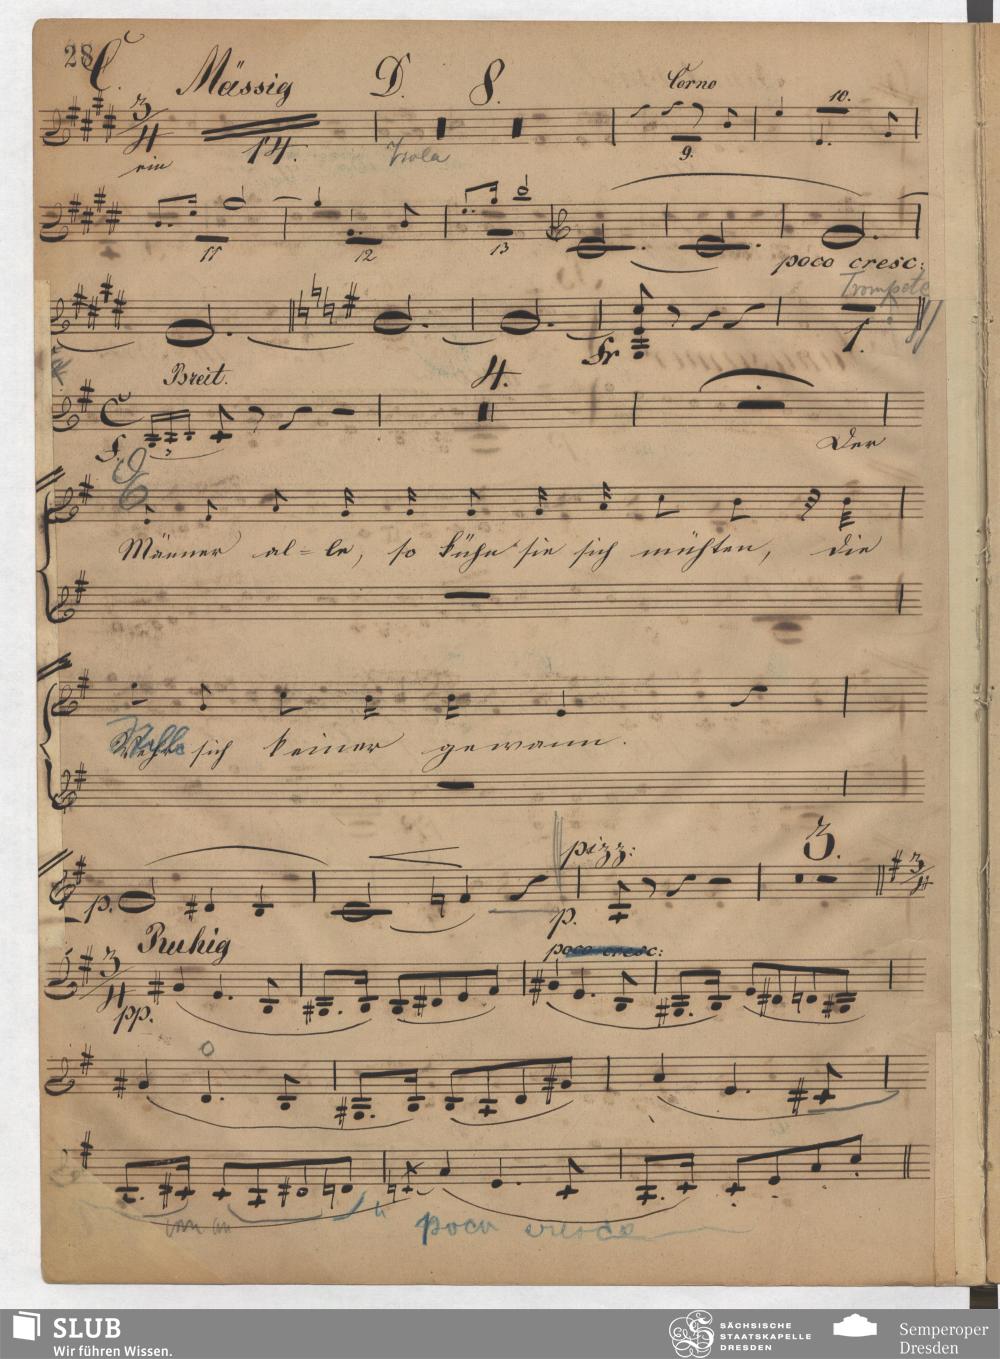 28
C. Mässig D. 8. Corno
3/4 14. 9. 10.
ein Viola
11 12 13 poco cresc:
Trompete
fr 1.
Breit. 4.
C 3 Der
f.
E
Männer al=le, so kühn sie sich mühten, die
Wehr sich keiner gewann.
pizz: 3.
p. p. 3/4
Ruhig poco cresc:
3/4
pp.
poco cresc
SLUB
Wir führen Wissen.
SÄCHSISCHE
STAATSKAPELLE
DRESDEN
Semperoper
Dresden